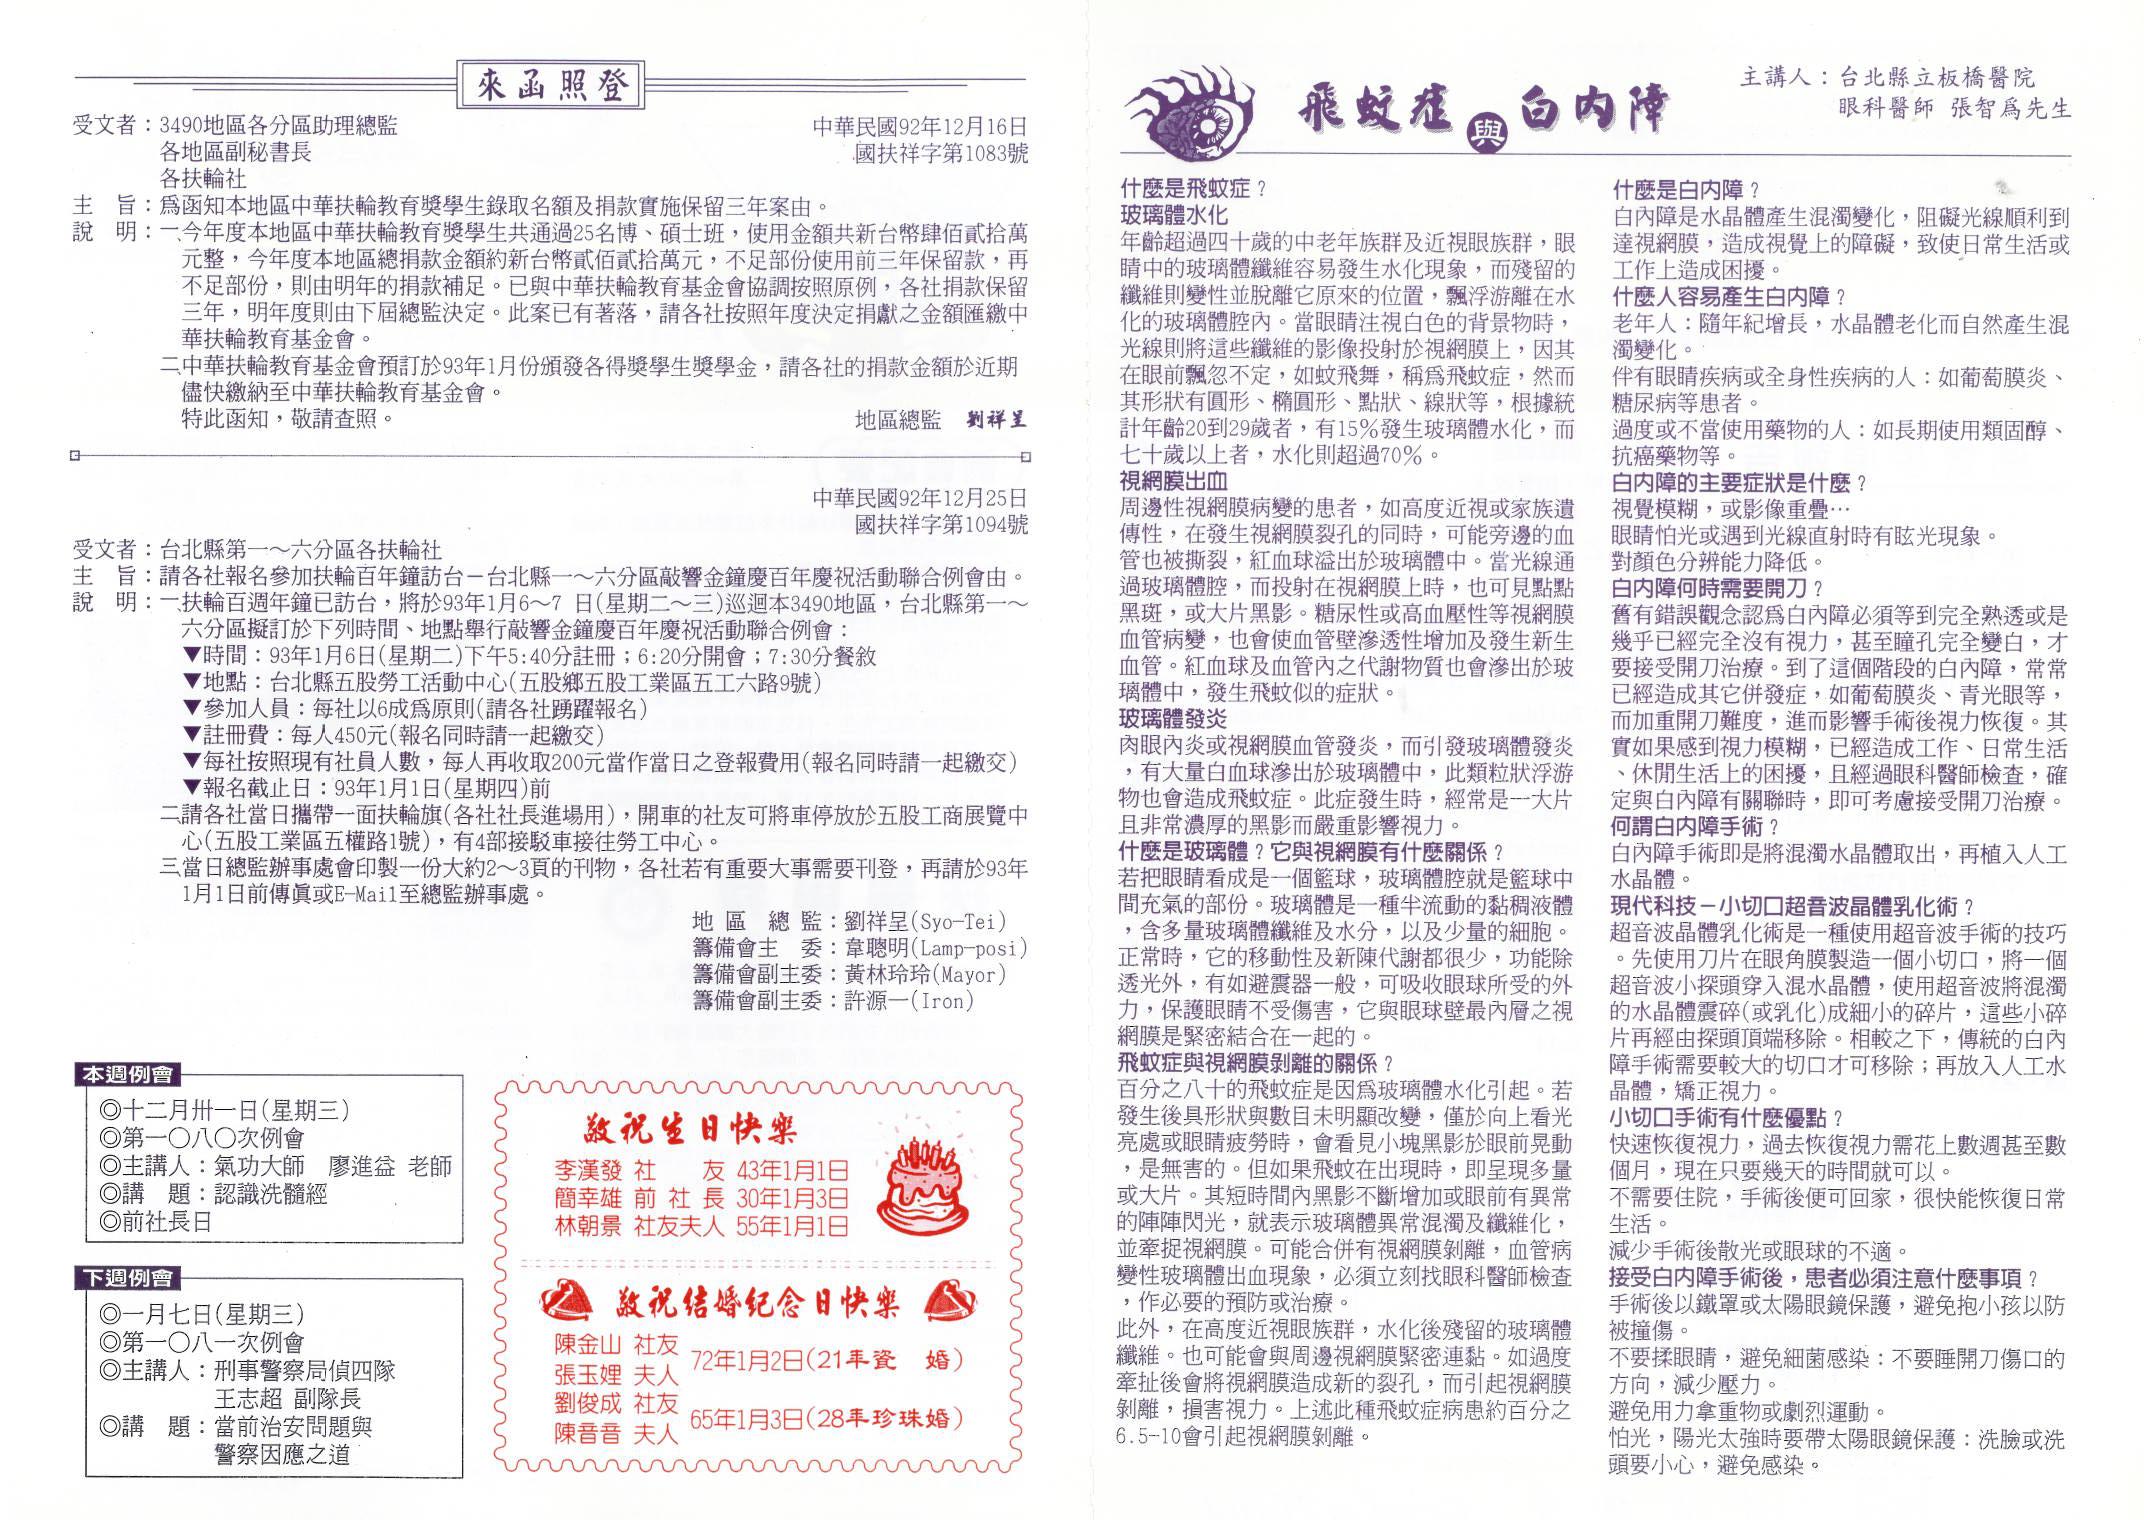 來函照登
受文者：3490地區各分區助理總監
各地區副秘書長
各扶輪社
中華民國92年12月16日
國扶祥字第1083號
主　旨：為函知本地區中華扶輪教育獎學生錄取名額及捐款實施保留三年案由。
說　明：一、今年度本地區中華扶輪教育獎學生共通過25名博、碩士班，使用金額共新台幣肆佰貳拾萬
元整，今年度本地區總捐款金額約新台幣貳佰貳拾萬元，不足部份使用前三年保留款，再
不足部份，則由明年的捐款補足。已與中華扶輪教育基金會協調按照原例，各社捐款保留
三年，明年度則由下屆總監決定。此案已有著落，請各社按照年度決定捐獻之金額匯繳中
華扶輪教育基金會。
二、中華扶輪教育基金會預訂於93年1月份頒發各得獎學生獎學金，請各社的捐款金額於近期
儘快繳納至中華扶輪教育基金會。
特此函知，敬請查照。
地區總監　劉祥呈
中華民國92年12月25日
國扶祥字第1094號
受文者：台北縣第一～六分區各扶輪社
主　旨：請各社報名參加扶輪百年鐘訪台－台北縣一～六分區敲響金鐘慶百年慶祝活動聯合例會由。
說　明：一、扶輪百週年鐘已訪台，將於93年1月6～7 日(星期二～三)巡迴本3490地區，台北縣第一～
六分區擬訂於下列時間、地點舉行敲響金鐘慶百年慶祝活動聯合例會：
▼時間：93年1月6日(星期二)下午5:40分註冊；6:20分開會；7:30分餐敘
▼地點：台北縣五股勞工活動中心(五股鄉五股工業區五工六路9號)
▼參加人員：每社以6成為原則(請各社踴躍報名)
▼註冊費：每人450元(報名同時請一起繳交)
▼每社按照現有社員人數，每人再收取200元當作當日之登報費用(報名同時請一起繳交)
▼報名截止日：93年1月1日(星期四)前
二、請各社當日攜帶一面扶輪旗(各社社長進場用)，開車的社友可將車停放於五股工商展覽中
心(五股工業區五權路1號)，有4部接駁車接往勞工中心。
三、當日總監辦事處會印製一份大約2～3頁的刊物，各社若有重要大事需要刊登，再請於93年
1月1日前傳真或E-Mail至總監辦事處。
地 區　總 監：劉祥呈(Syo-Tei)
籌備會主　委：韋聰明(Lamp-posi)
籌備會副主委：黃林玲玲(Mayor)
籌備會副主委：許源一(Iron)
本週例會
◎十二月卅一日(星期三)
◎第一〇八〇次例會
◎主講人：氣功大師　廖進益 老師
◎講　題：認識洗髓經
◎前社長日
下週例會
◎一月七日(星期三)
◎第一〇八一次例會
◎主講人：刑事警察局偵四隊
王志超 副隊長
◎講　題：當前治安問題與
警察因應之道
敬祝生日快樂
李漢發 社　　友 43年1月1日
簡幸雄 前 社 長 30年1月3日
林朝景 社友夫人 55年1月1日
敬祝結婚紀念日快樂
陳金山 社友
張玉娌 夫人
72年1月2日(21年瓷　婚)
劉俊成 社友
陳音音 夫人
65年1月3日(28年珍珠婚)
飛蚊症與白內障
主講人：台北縣立板橋醫院
眼科醫師 張智為先生
什麼是飛蚊症？
玻璃體水化
年齡超過四十歲的中老年族群及近視眼族群，眼
睛中的玻璃體纖維容易發生水化現象，而殘留的
纖維則變性並脫離它原來的位置，飄浮游離在水
化的玻璃體腔內。當眼睛注視白色的背景物時，
光線則將這些纖維的影像投射於視網膜上，因其
在眼前飄忽不定，如蚊飛舞，稱為飛蚊症，然而
其形狀有圓形、橢圓形、點狀、線狀等，根據統
計年齡20到29歲者，有15%發生玻璃體水化，而
七十歲以上者，水化則超過70%。
視網膜出血
周邊性視網膜病變的患者，如高度近視或家族遺
傳性，在發生視網膜裂孔的同時，可能旁邊的血
管也被撕裂，紅血球溢出於玻璃體中。當光線通
過玻璃體腔，而投射在視網膜上時，也可見點點
黑斑，或大片黑影。糖尿性或高血壓性等視網膜
血管病變，也會使血管壁滲透性增加及發生新生
血管。紅血球及血管內之代謝物質也會滲出於玻
璃體中，發生飛蚊似的症狀。
玻璃體發炎
肉眼內炎或視網膜血管發炎，而引發玻璃體發炎
，有大量白血球滲出於玻璃體中，此類粒狀浮游
物也會造成飛蚊症。此症發生時，經常是一大片
且非常濃厚的黑影而嚴重影響視力。
什麼是玻璃體？它與視網膜有什麼關係？
若把眼睛看成是一個籃球，玻璃體腔就是籃球中
間充氣的部份。玻璃體是一種半流動的黏稠液體
，含多量玻璃體纖維及水分，以及少量的細胞。
正常時，它的移動性及新陳代謝都很少，功能除
透光外，有如避震器一般，可吸收眼球所受的外
力，保護眼睛不受傷害，它與眼球壁最內層之視
網膜是緊密結合在一起的。
飛蚊症與視網膜剝離的關係？
百分之八十的飛蚊症是因為玻璃體水化引起。若
發生後具形狀與數目未明顯改變，僅於向上看光
亮處或眼睛疲勞時，會看見小塊黑影於眼前晃動
，是無害的。但如果飛蚊在出現時，即呈現多量
或大片。其短時間內黑影不斷增加或眼前有異常
的陣陣閃光，就表示玻璃體異常混濁及纖維化，
並牽捉視網膜。可能合併有視網膜剝離，血管病
變性玻璃體出血現象，必須立刻找眼科醫師檢查
，作必要的預防或治療。
此外，在高度近視眼族群，水化後殘留的玻璃體
纖維。也可能會與周邊視網膜緊密連黏。如過度
牽扯後會將視網膜造成新的裂孔，而引起視網膜
剝離，損害視力。上述此種飛蚊症病患約百分之
6.5-10會引起視網膜剝離。
什麼是白內障？
白內障是水晶體產生混濁變化，阻礙光線順利到
達視網膜，造成視覺上的障礙，致使日常生活或
工作上造成困擾。
什麼人容易產生白內障？
老年人：隨年紀增長，水晶體老化而自然產生混
濁變化。
伴有眼睛疾病或全身性疾病的人：如葡萄膜炎、
糖尿病等患者。
過度或不當使用藥物的人：如長期使用類固醇、
抗癌藥物等。
白內障的主要症狀是什麼？
視覺模糊，或影像重疊…
眼睛怕光或遇到光線直射時有眩光現象。
對顏色分辨能力降低。
白內障何時需要開刀？
舊有錯誤觀念認為白內障必須等到完全熟透或是
幾乎已經完全沒有視力，甚至瞳孔完全變白，才
要接受開刀治療。到了這個階段的白內障，常常
已經造成其它併發症，如葡萄膜炎、青光眼等，
而加重開刀難度，進而影響手術後視力恢復。其
實如果感到視力模糊，已經造成工作、日常生活
、休閒生活上的困擾，且經過眼科醫師檢查，確
定與白內障有關聯時，即可考慮接受開刀治療。
何謂白內障手術？
白內障手術即是將混濁水晶體取出，再植入人工
水晶體。
現代科技－小切口超音波晶體乳化術？
超音波晶體乳化術是一種使用超音波手術的技巧
。先使用刀片在眼角膜製造一個小切口，將一個
超音波小探頭穿入混水晶體，使用超音波將混濁
的水晶體震碎(或乳化)成細小的碎片，這些小碎
片再經由探頭頂端移除。相較之下，傳統的白內
障手術需要較大的切口才可移除；再放入人工水
晶體，矯正視力。
小切口手術有什麼優點？
快速恢復視力，過去恢復視力需花上數週甚至數
個月，現在只要幾天的時間就可以。
不需要住院，手術後便可回家，很快能恢復日常
生活。
減少手術後散光或眼球的不適。
接受白內障手術後，患者必須注意什麼事項？
手術後以鐵罩或太陽眼鏡保護，避免抱小孩以防
被撞傷。
不要揉眼睛，避免細菌感染：不要睡開刀傷口的
方向，減少壓力。
避免用力拿重物或劇烈運動。
怕光，陽光太強時要帶太陽眼鏡保護：洗臉或洗
頭要小心，避免感染。